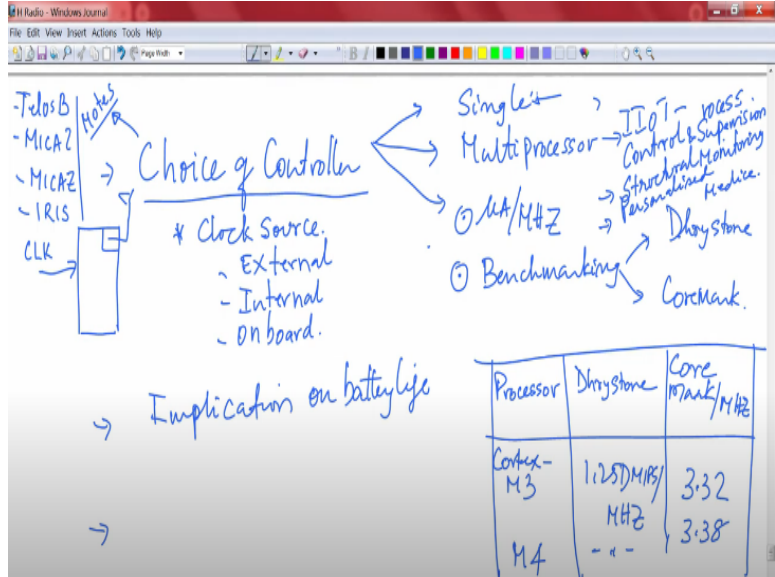 H Radio - Windows Journal
File Edit View Insert Actions Tools Help
Page Width
B I
-TelosB
-MICA2
-MICAZ
-IRIS
CLK
Motes
Choice of Controller
* Clock Source.
- External
- Internal
- Onboard.
Implication on battery life
Single
Multiprocessor
IIOT -
Control & Supervision
Structural Monitoring
Personalised
Medice.
µA/MHZ
Benchmarking
Dhrystone
CoreMark.
Processor Dhrystone Core Mark/MHZ
Cortex-M3 1.25DMIPS/MHZ 3.32
M4 - " - 3.38